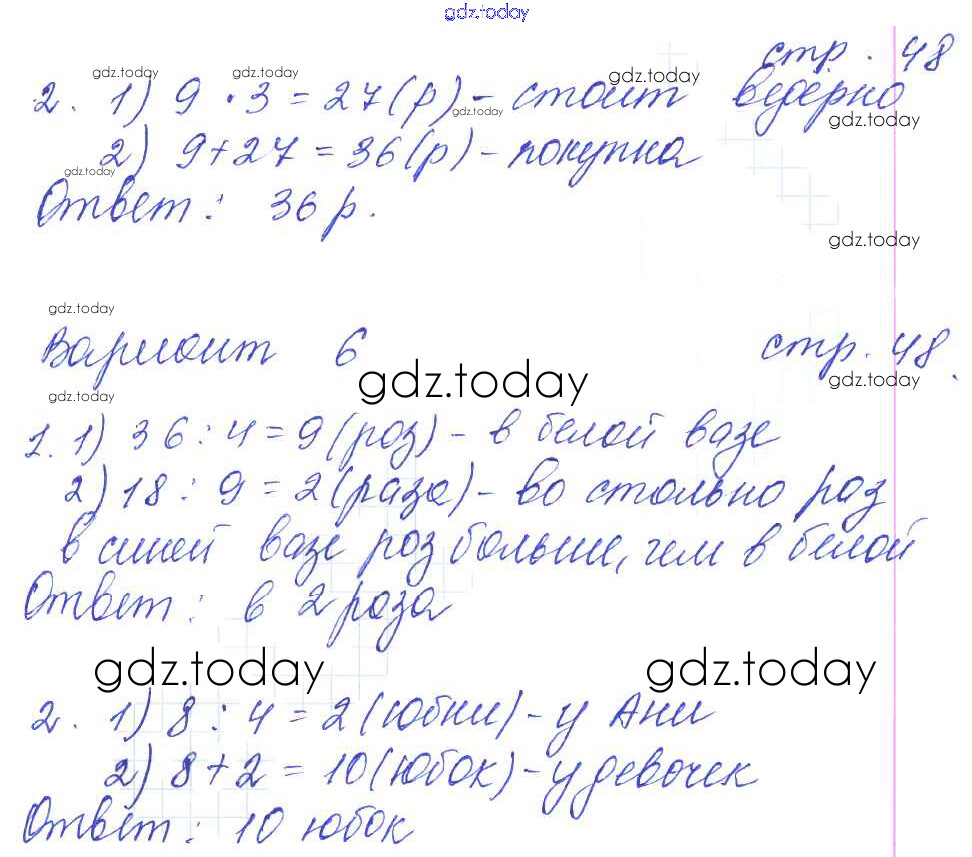 gdz.today
стр. 48
gdz.today gdz.today gdz.today
2. 1) 9 · 3 = 27 (р) - стоит ведёрко
gdz.today gdz.today
2) 9 + 27 = 36 (р) - покупка
gdz.today
Ответ: 36 р.
gdz.today
gdz.today
Вариант 6 стр. 48.
gdz.today gdz.today
gdz.today
1. 1) 36 : 4 = 9 (роз) - в белой вазе
2) 18 : 9 = 2 (раза) - во столько раз
в синей вазе роз больше, чем в белой
Ответ: в 2 раза
gdz.today gdz.today
2. 1) 8 : 4 = 2 (юбки) - у Ани
2) 8 + 2 = 10 (юбок) - у девочек
Ответ: 10 юбок